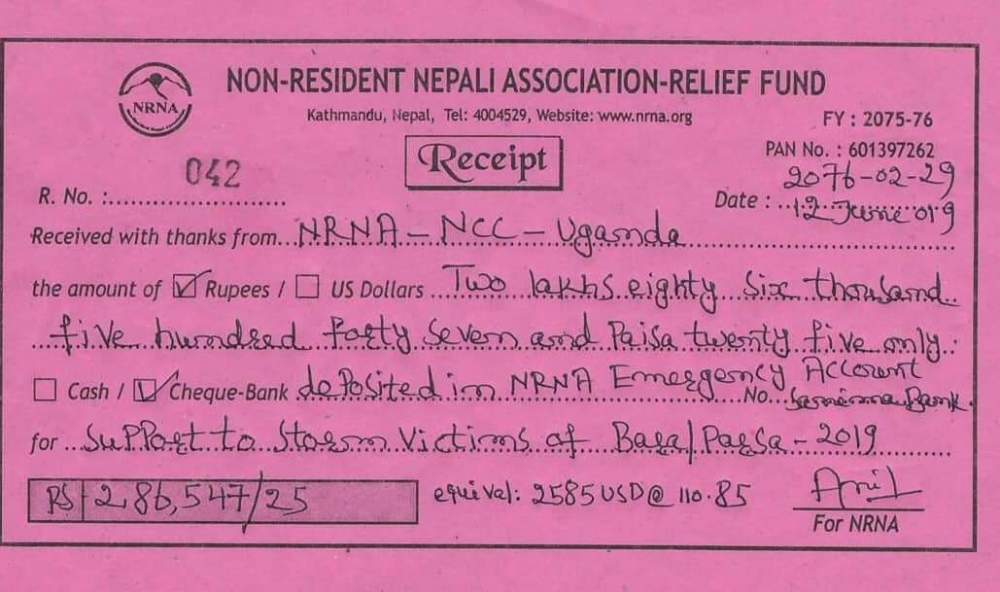 NRNA
NON-RESIDENT NEPALI ASSOCIATION-RELIEF FUND
Kathmandu, Nepal, Tel: 4004529, Website: www.nrna.org
FY : 2075-76
Receipt
PAN No. : 601397262
R. No. : 042
2076-02-29
Date : 12 June 019
Received with thanks from NRNA - NCC - Uganda
the amount of ☑ Rupees / ☐ US Dollars Two lakhs eighty six thousand
five hundred forty seven and Paisa twenty five only.
☐ Cash / ☑ Cheque-Bank deposited in NRNA Emergency Account
No. Sanima Bank.
for Support to Storm Victims of Bara/Parsa - 2019
RS 286,547/25
equival: 2585 USD @ 110.85
For NRNA